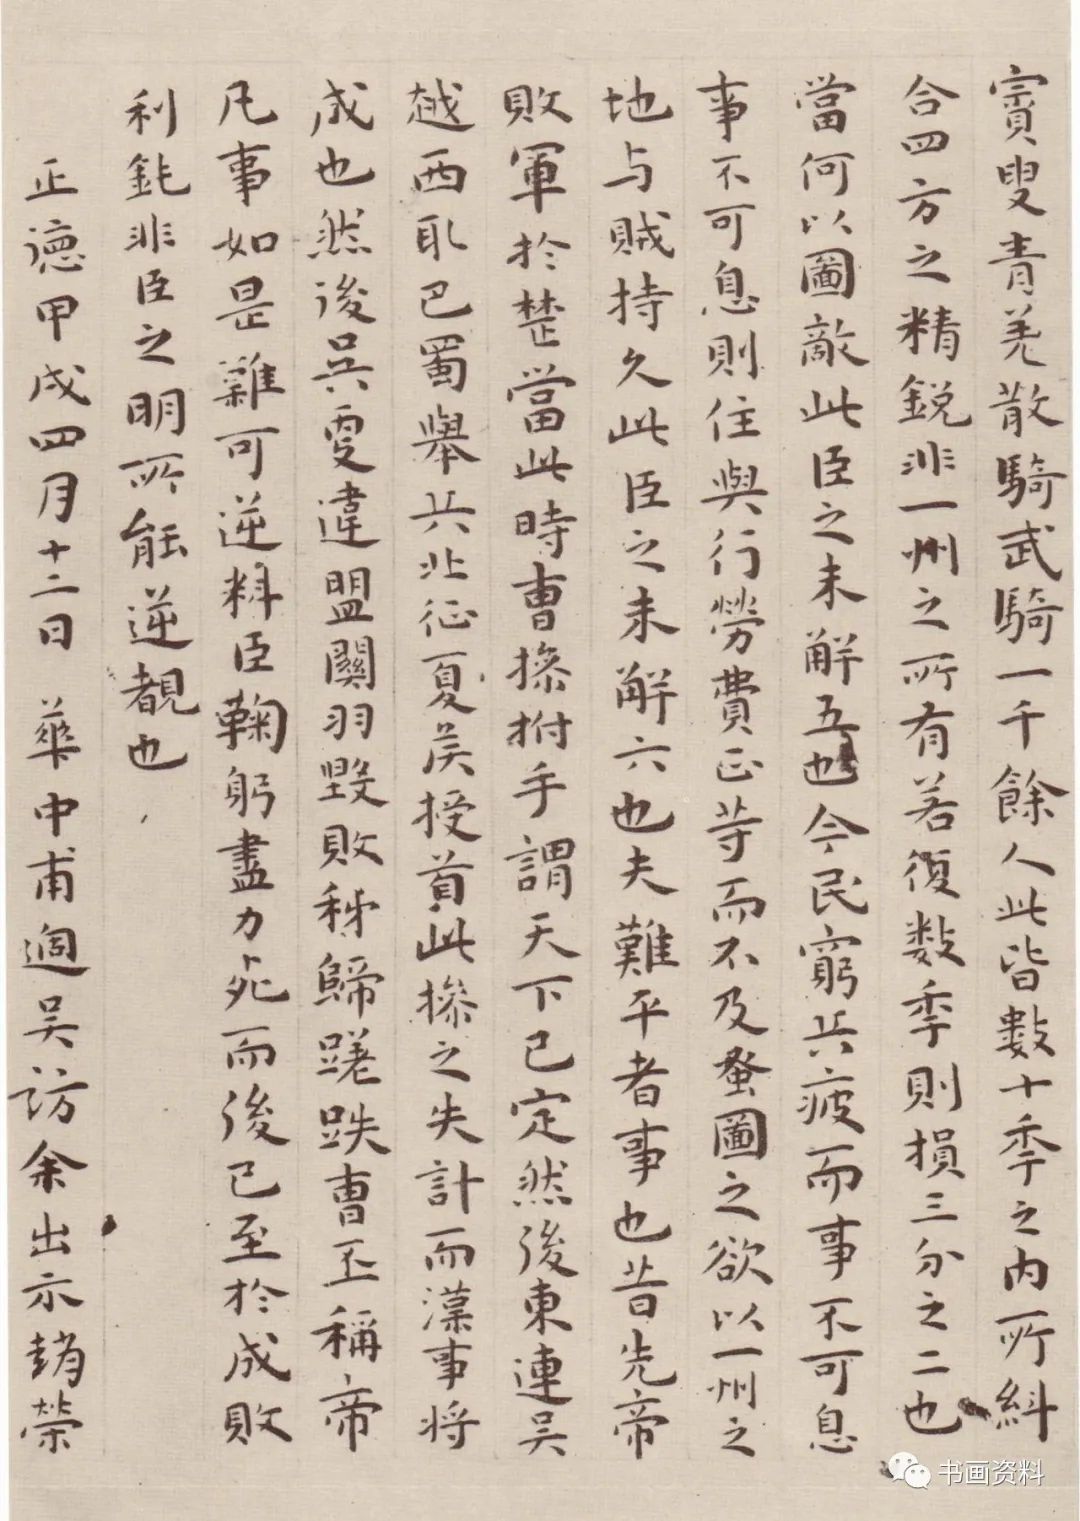 賨叟青羌散騎武騎一千餘人此皆數十季之内所糾
合四方之精銳非一州之所有若復数季則損三分之二也
當何以圖敵此臣之未解五也今民窮兵疲而事不可息
事不可息則住與行勞費正等而不及蚤圖之欲以一州之
地与賊持久此臣之未解六也夫難平者事也昔先帝
敗軍於楚當此時曹操拊手謂天下已定然後東連吴
越西取巴蜀舉兵北征夏侯授首此操之失計而漢事将
成也然後吴更違盟關羽毀敗秭歸蹉跌曹丕稱帝
凡事如是難可逆料臣鞠躬盡力死而後已至於成敗
利鈍非臣之明所能逆覩也
正德甲戌四月十二日 華中甫過吴訪余出示趙榮
书画资料